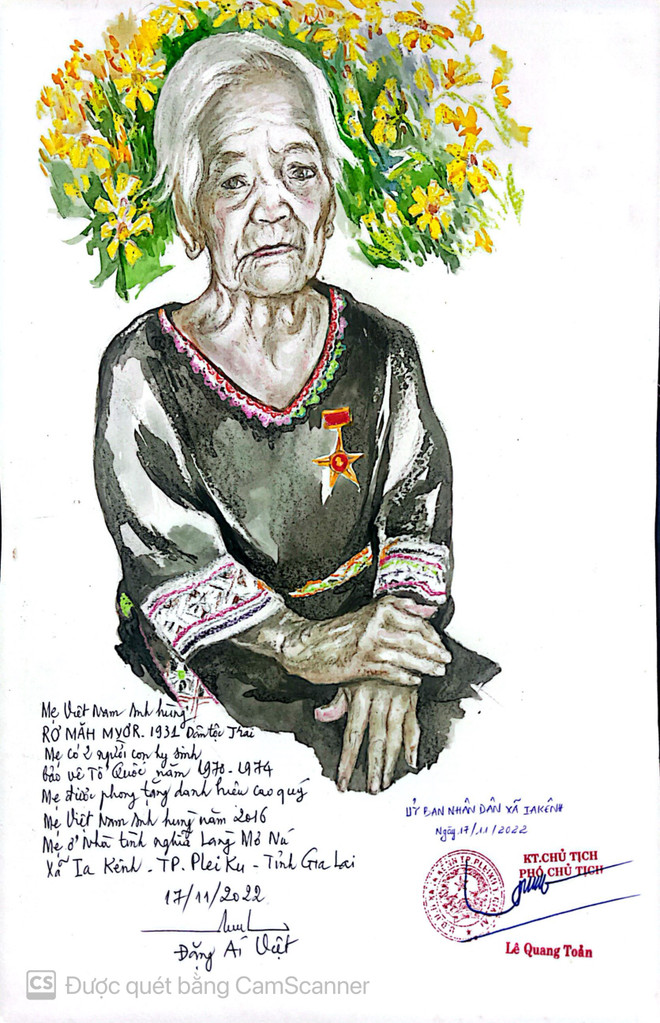 Mẹ Việt Nam Anh hùng
RƠ MĂH MYƠR. 1931 Dân tộc Jrai
Mẹ có 2 người con hy sinh
bảo vệ Tổ Quốc năm 1970-1974
Mẹ được phong tặng danh hiệu cao quý
Mẹ Việt Nam Anh hùng năm 2016
Mẹ ở Nhà tình nghĩa Làng Mơ Nú
Xã Ia Kênh - TP. Plei Ku - Tỉnh Gia Lai
17/11/2022
Đặng Ái Việt
ỦY BAN NHÂN DÂN XÃ IAKÊNH
Ngày 17/11/2022
KT.CHỦ TỊCH
PHÓ CHỦ TỊCH
Lê Quang Toản
CS Được quét bằng CamScanner